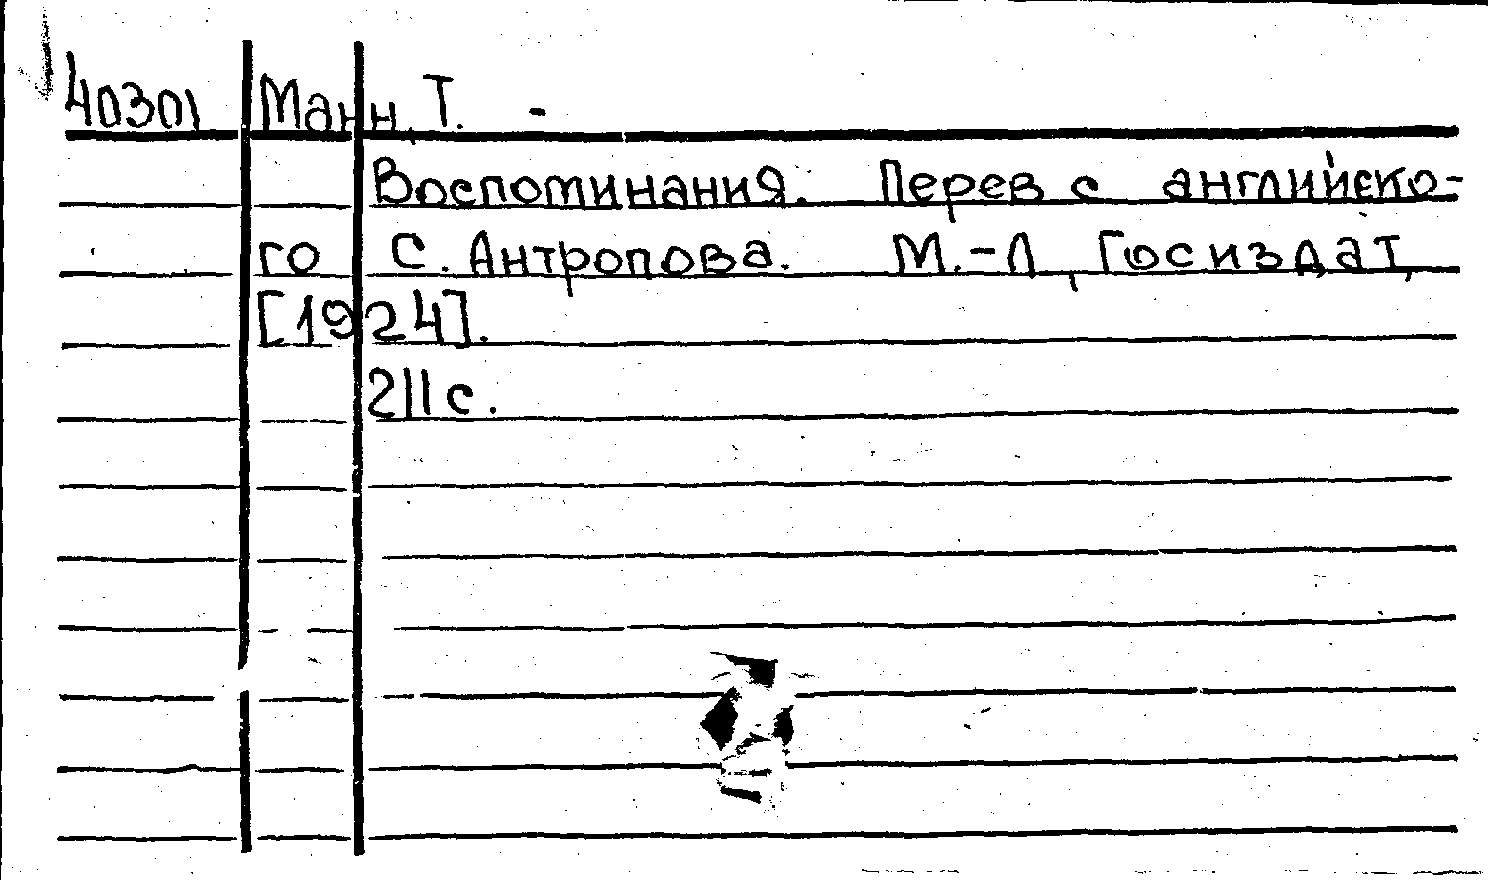 40301 Манн, Т. -
Воспоминания. Перев с английско-
го С. Антропова. М.-Л, Госиздат,
[1924].
211 с.